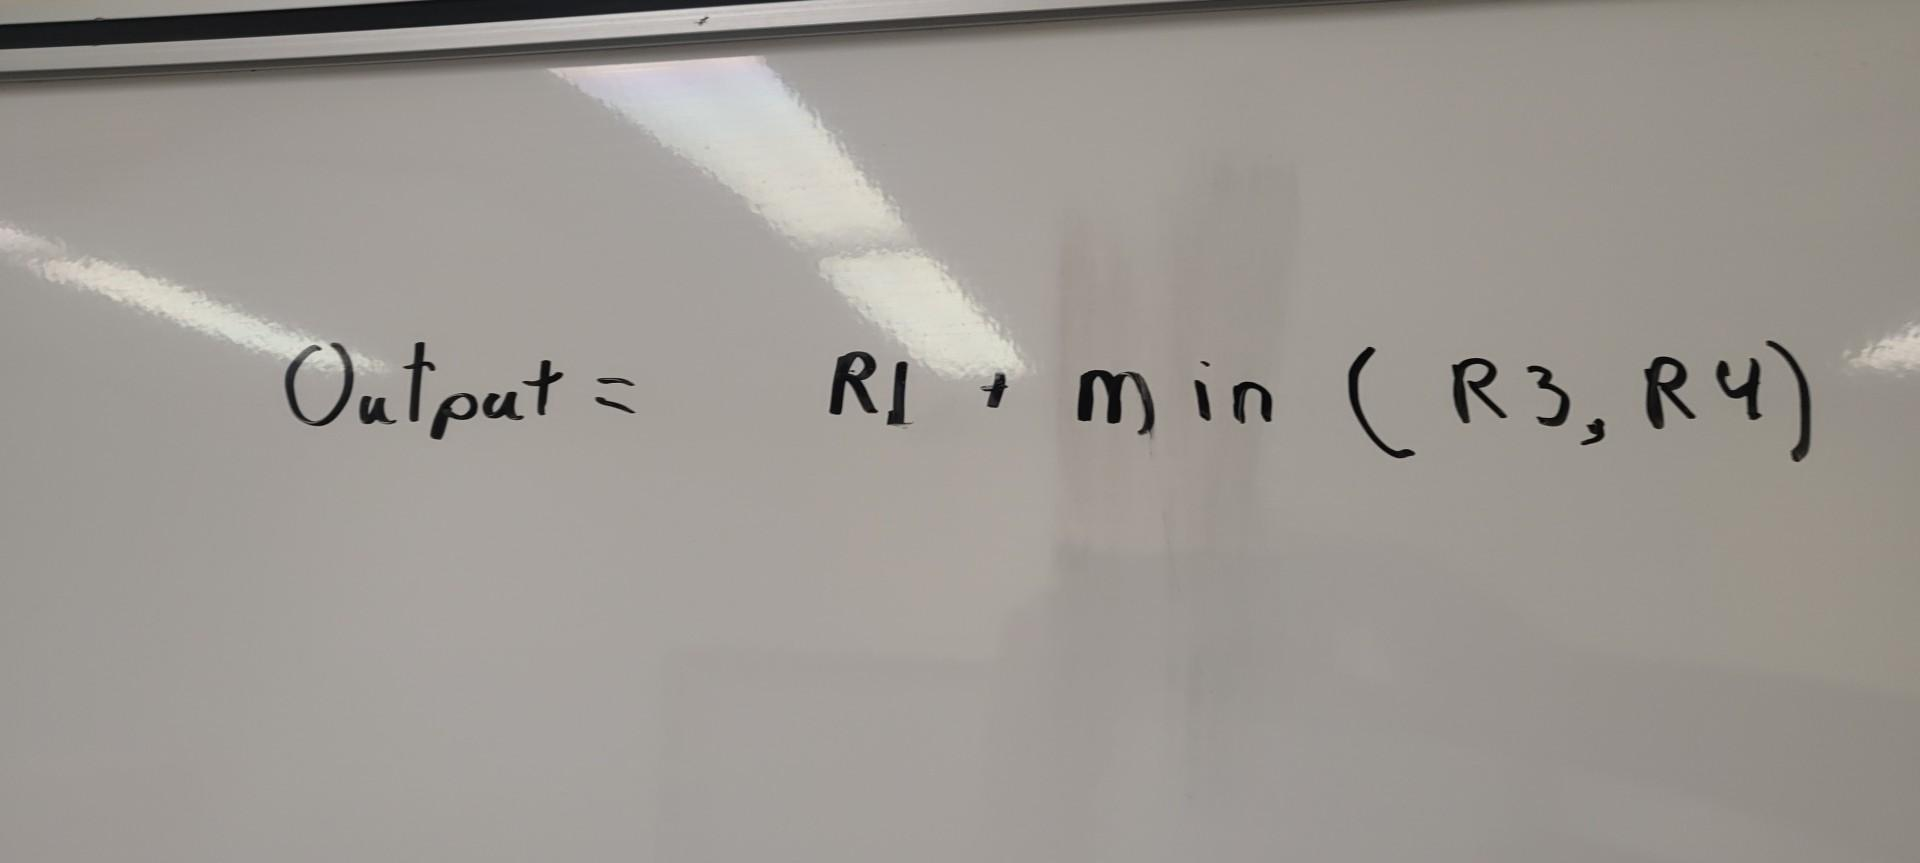 Output = R1 + min ( R3, R4)